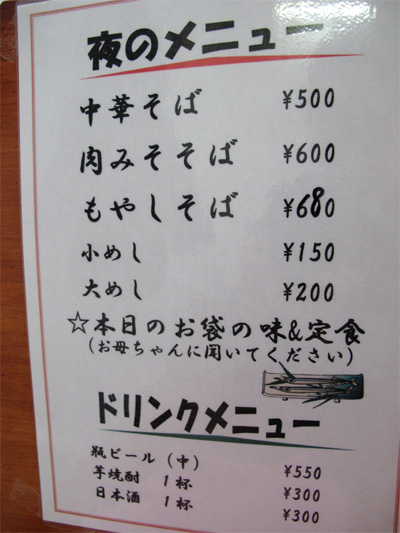 夜のメニュー
中華そば ¥500
肉みそそば ¥600
もやしそば ¥680
小めし ¥150
大めし ¥200
☆本日のお袋の味&定食
(お母ちゃんに聞いてください)
ドリンクメニュー
瓶ビール(中) ¥550
芋焼酎 1杯 ¥300
日本酒 1杯 ¥300